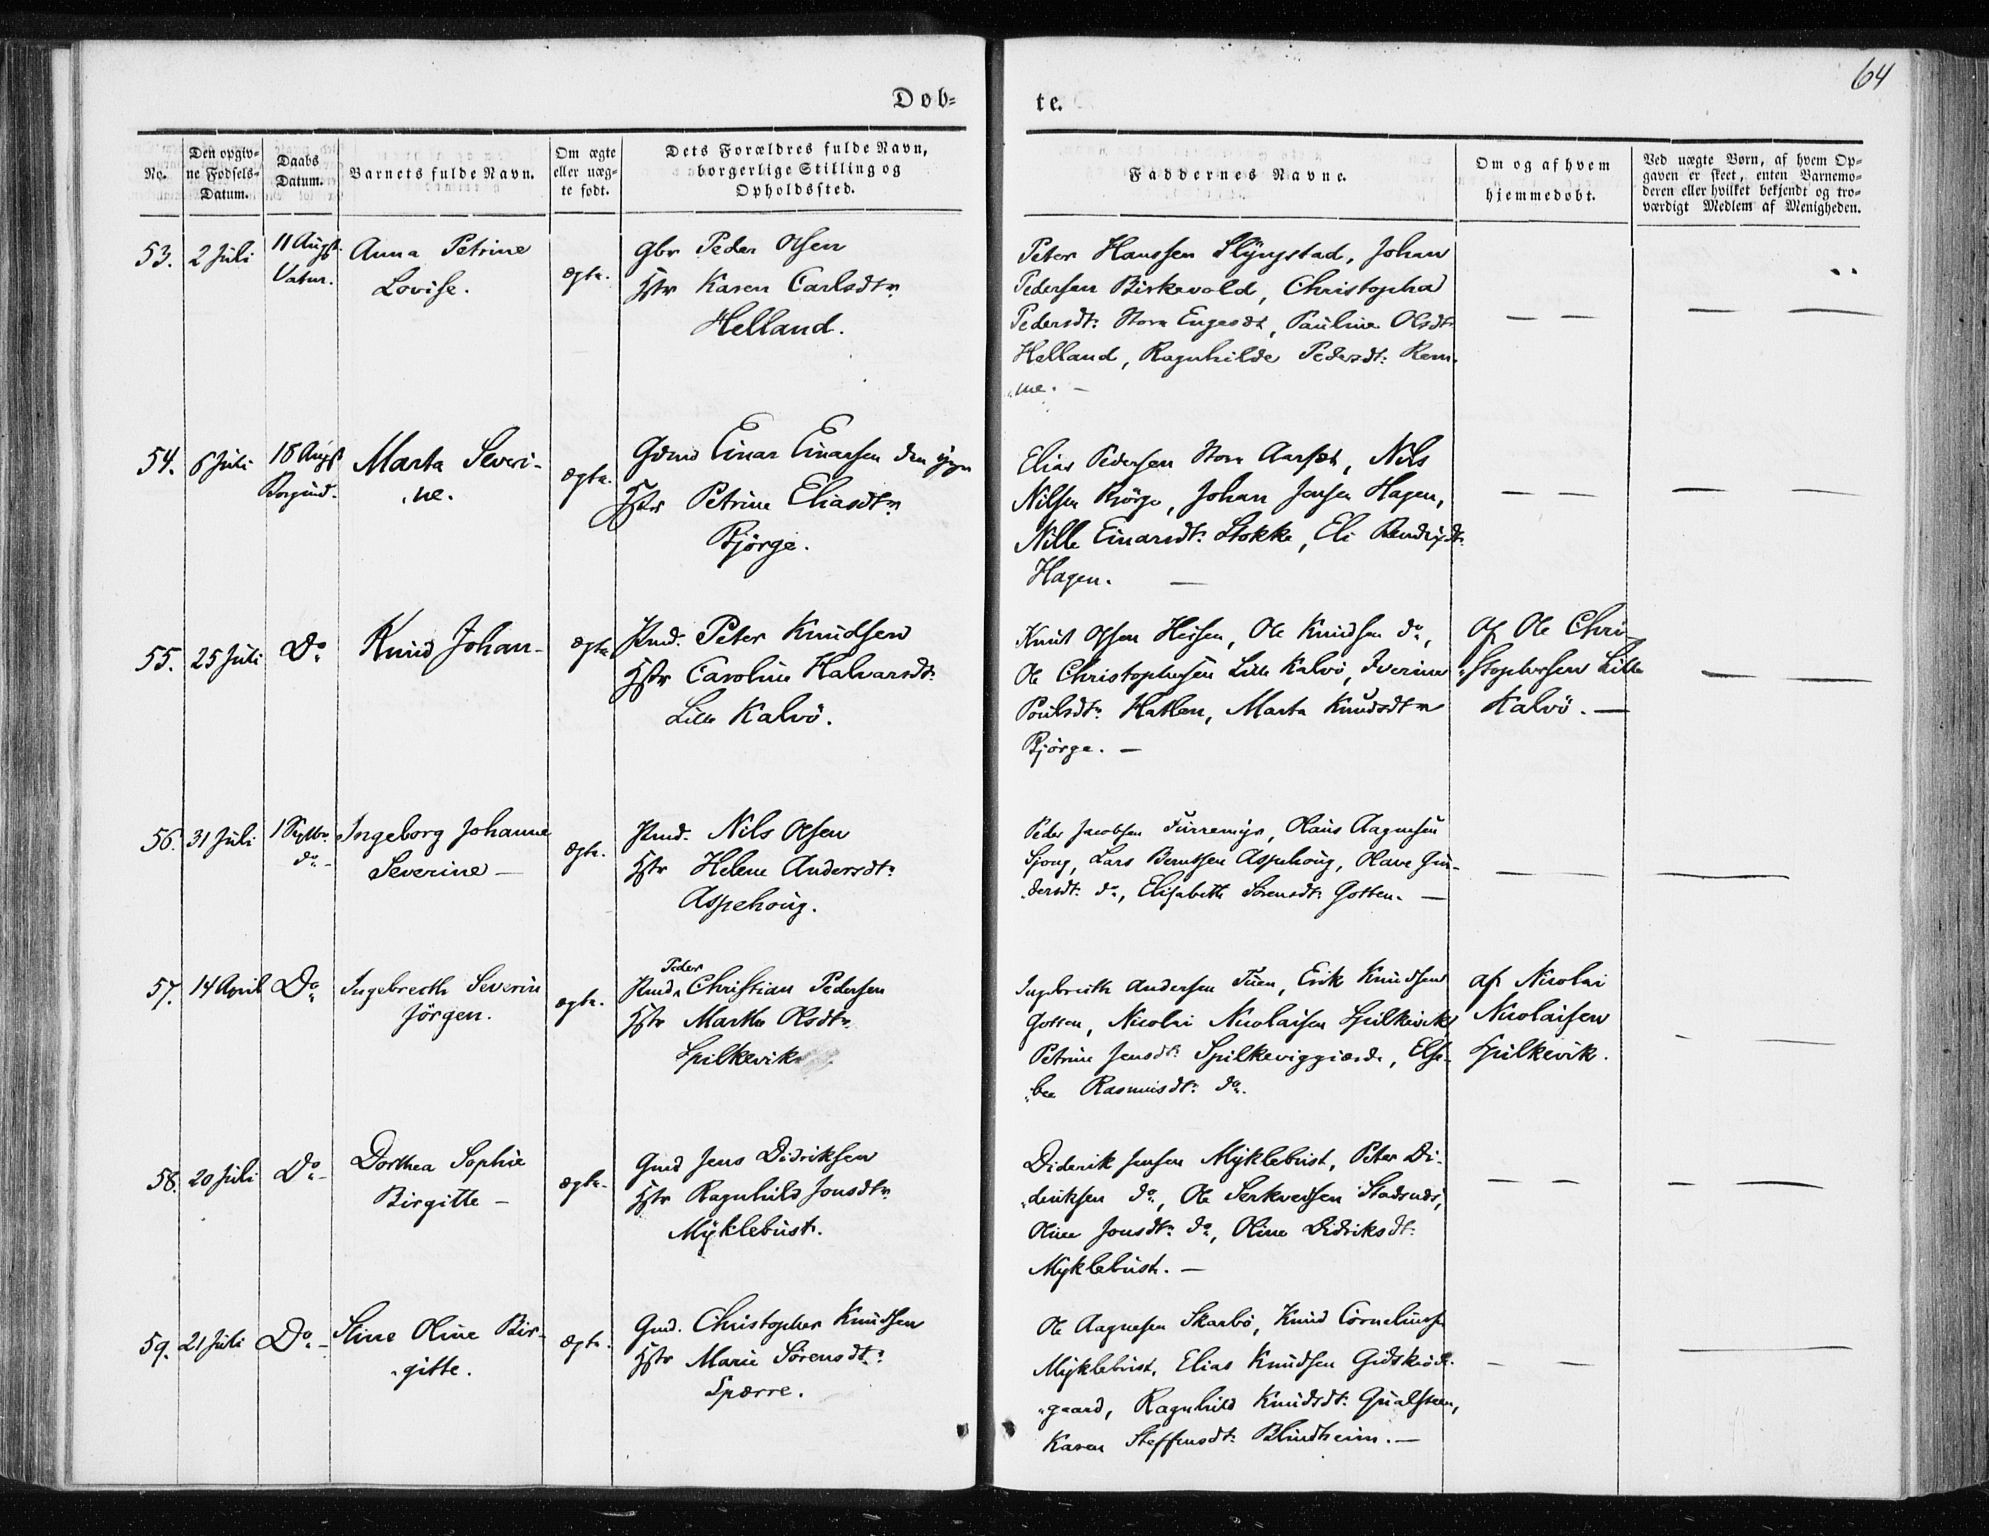 64
Døb-
te.
No.
Den opgiv-
ne Fødsels-
Datum.
Daabs
Datum.
Barnets fulde Navn.
Om ægte
eller uæg-
te født.
Dets Forældres fulde Navn,
borgerlige Stilling og
Opholdssted.
Faddernes Navne.
Om og af hvem
hjemmedøbt.
Ved uægte Børn, af hvem Op-
gaven er skeet, enten Barnemo-
deren eller hvilket bekjendt og tro-
værdigt Medlem af Menigheden.
53. 2 Juli 11 Augst
Vatnr.
Anna Petrine
Lovise.
ægte.
Gbr Peder Olsen
Hstr Karen Carlsdtr
Helland.
Peter Hanssen Slyngstad, Johan
Pedersen Birkevold, Christopha
Pedersdt: Store Engesæt, Pauline Olsdt
Helland, Ragnhilde Pedersdt: Rem-
me. —
— —
— —
54. 6 Juli 18 Augst
Borgund.
Marta Severi-
ne.
ægte.
Gdmd Einar Einarsen den yngr
Hstr Petrine Eliasdtr
Bjørge.
Elias Pedersen Store Aarsæt, Nils
Nilsen Bjørge, Johan Jensen Hagen,
Nille Einarsdt: Stokke, Eli
Hagen. —
— —
— —
55. 25 Juli Do
Knud Johan-
ægte
Pmd. Peter Knudsen
Hstr Caroline Halvarsdt:
Lille Kalvö.
Knut Olsen Hessen, Ole Knudsen do,
Ole Christophersen Lille Kalvö, Iverine
Poulsdt: Hatlen, Marta Knudsdtr
Bjørge. —
af Ole Chri-
stophersen Lille
Kalvö. —
— —
56. 31 Juli 1 Septbr
do —
Ingeborg Johanne
Severine —
ægte.
Pmd. Nils Olsen
Hstr Helene Andersdt:
Aspehoug.
Peder Jacobsen Furremyr, Olaus Aagnesen
Sjong, Lars Berntsen Aspehoug, Olave Gun-
dersdt: do, Elisabeth Sørensdt: Gotten. —
—
—
57. 14 April Do
Ingebreth Severin
Jörgen.
ægte.
Peder
Pmd. Christian Pedersen
Hstr Marthe Olsdtr
Spilkevik
Ingebreith Andersen Tuen, Erik Knudsen
Gotten, Nicolai Nicolaisen Spilkevik,
Petrine Jensdt: Spilkeviggierde, Else-
bee Rasmusdt: do.
af Nicolai
Nicolaisen
Spilkevik.
— —
58. 20 Juli Do —
Dorthea Sophie
Birgitte —
ægte.
Gmd Jens Didriksen
Hstr Ragnhild Jonsdtr
Myklebust.
Diderik Jensen Myklebust, Peter Di-
deriksen do, Ole Serkvedsen Stadsnæs,
Oline Jonsdtr do, Oline Didriksdt:
Myklebust. —
— —
— —
59. 21 Juli Do —
Stine Oline Bir-
gitte.
ægte.
Gmd. Christopher Knudsen
Hstr Marie Sørensdt:
Sperre.
Ole Aagnesen Skarbö, Knud Corneliusen
Myklebust, Elias Knudsen Gidskiöde-
gaard, Ragnhild Knudsdt: Gjualsteen,
Karen Steffensdt: Blindheim. —
— —
—